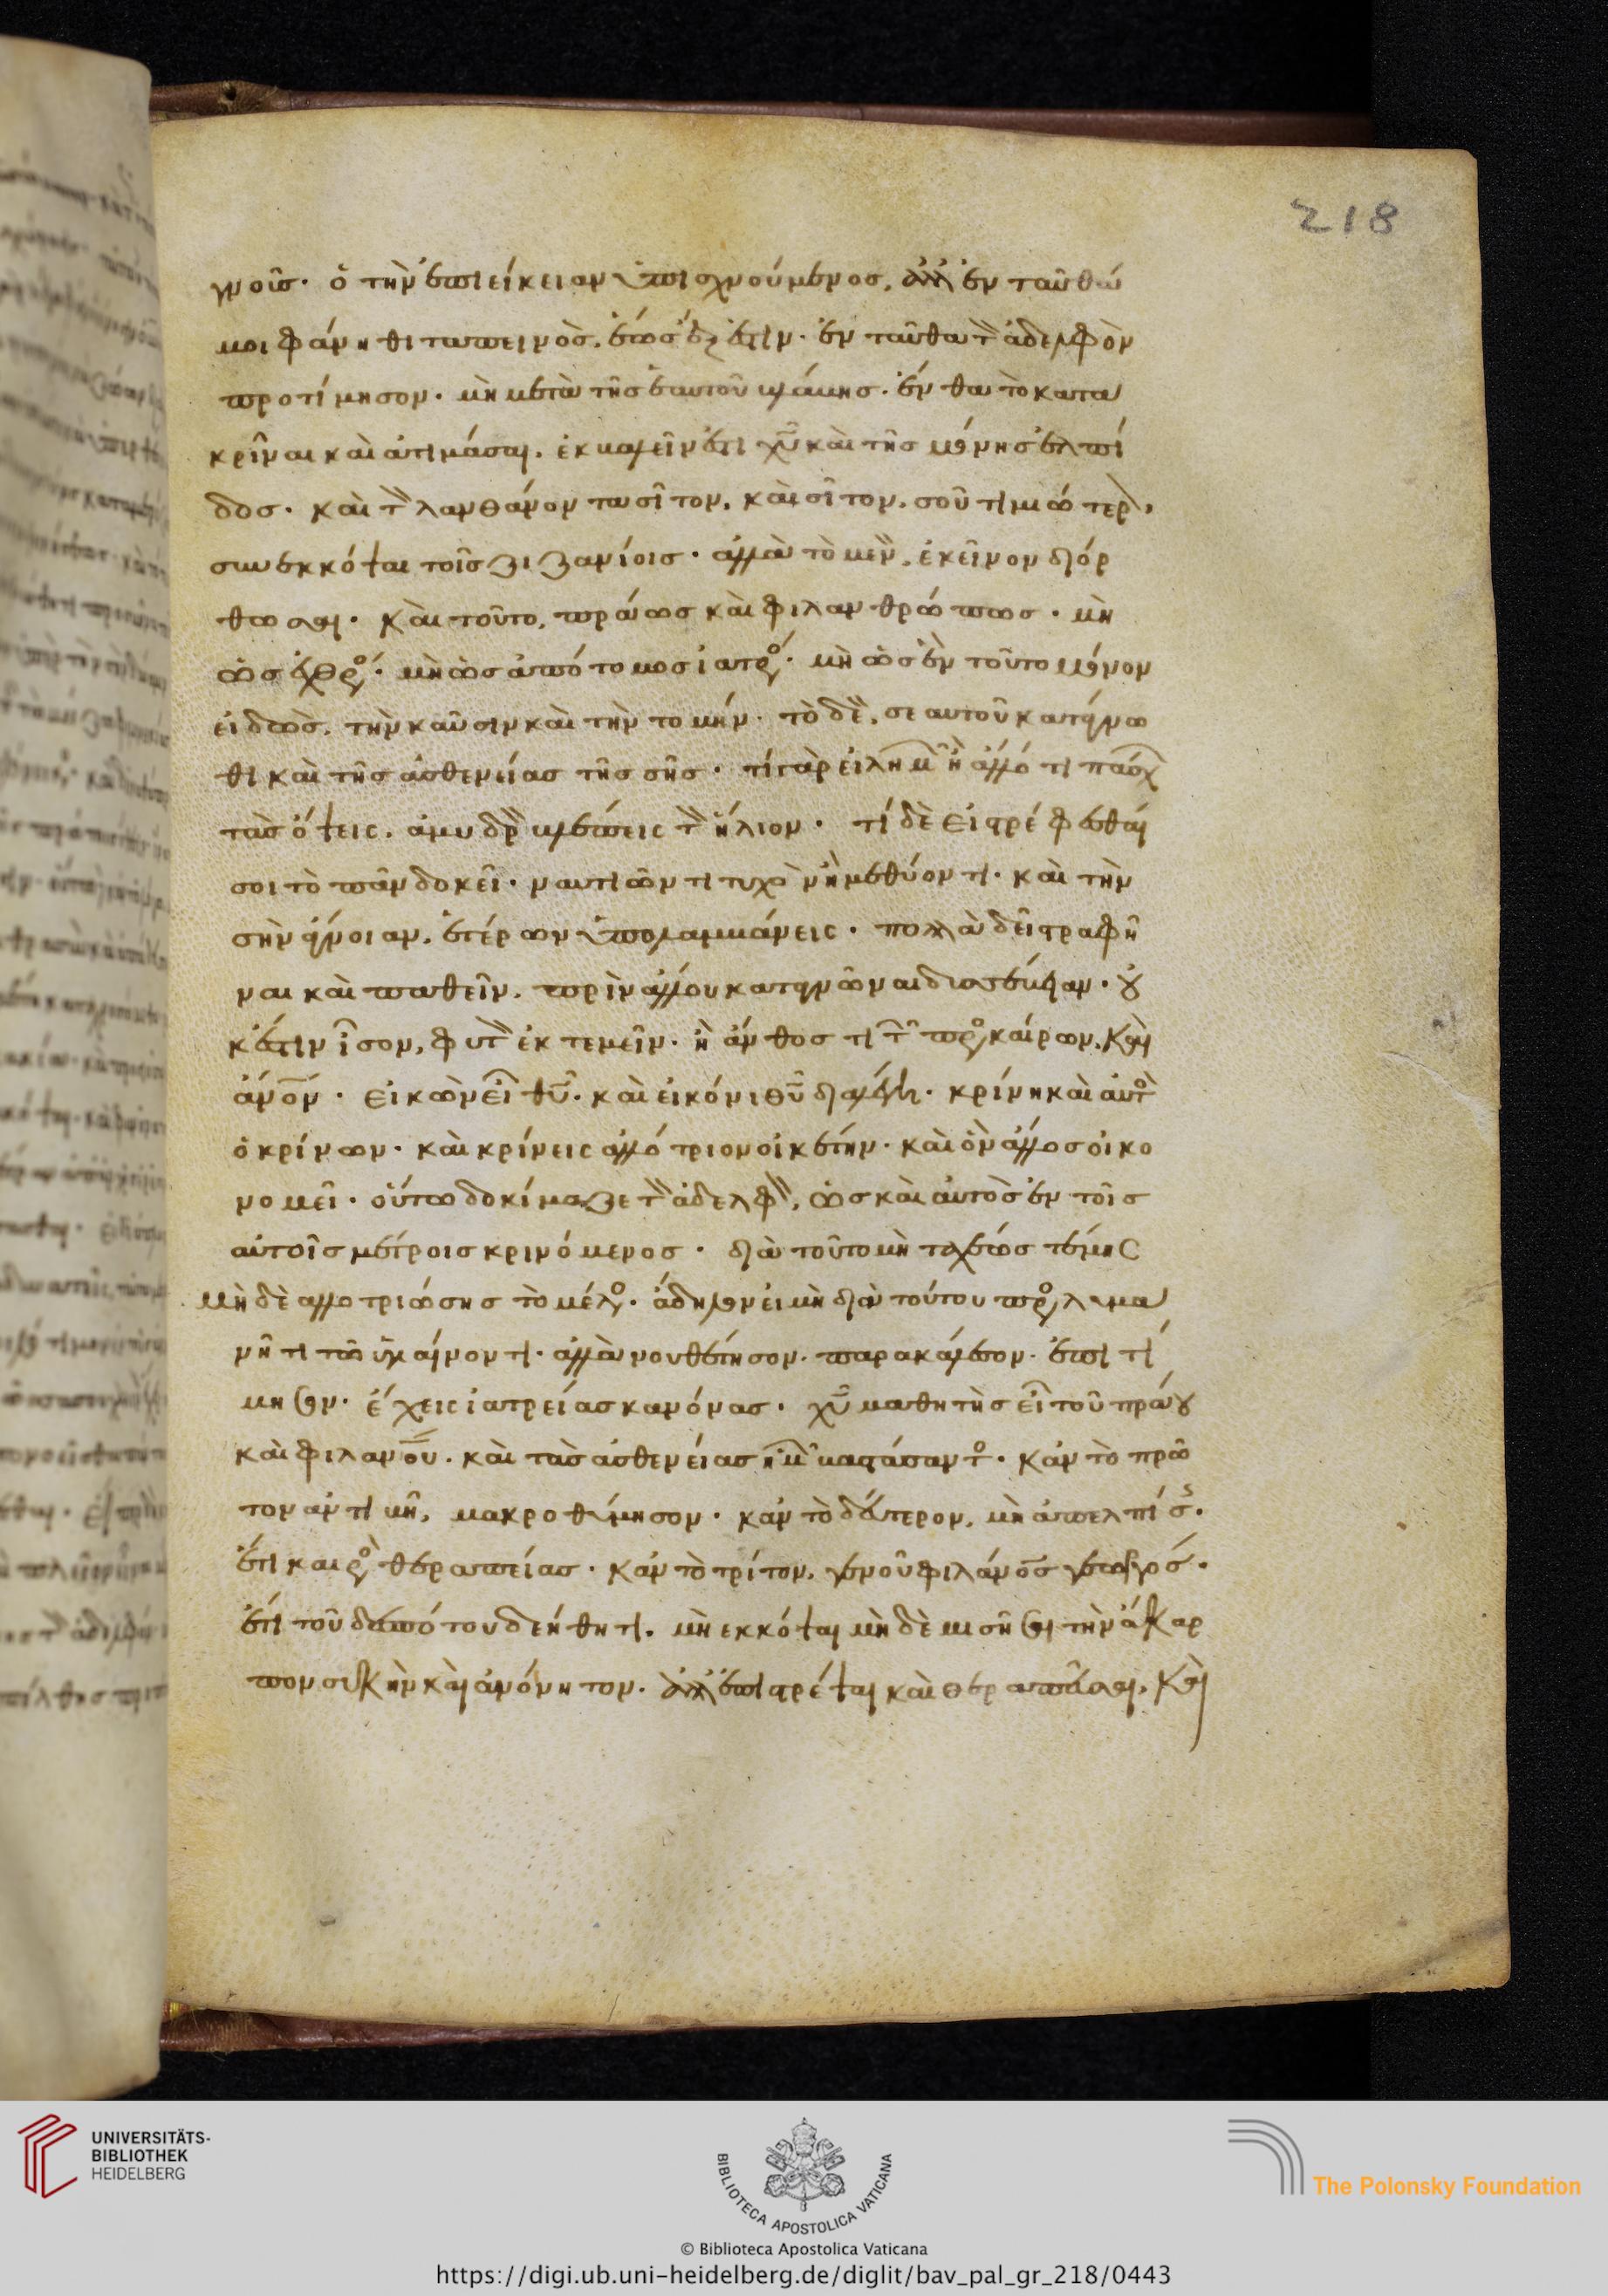 γνοῖς· ὁ τὴν ἐπιείκειαν ὑπισχνούμενος, ἀλλ' ἐνταῦθά
μοι φάνηθι ταπεινὸς, ἕως ἔξεστιν· ἐνταῦθα τὸν ἀδελφὸν
προτίμησον· μὴ μετὰ τῆς ἑαυτοῦ βλάβης· ἔνθα τὸ κατα
κρῖναι καὶ ἀτιμάσαι, ἐκβαλεῖν ἐστι χ̅υ̅ καὶ τῆς μόνης ἐλπί
δος· καὶ τὸν λανθάνοντα σῖτον, καὶ σῖτον, σοῦ τιμιώτερον,
συνεκκόψαι τοῖς ζιζανίοις· ἀλλὰ τὸ μὲν, ἐκεῖνον διόρ
θωσαι· καὶ τοῦτο, πράως καὶ φιλανθρώπως· μὴ
ὡς ἐχθρός· μὴ ὡς ἀπότομος ἰατρός· μὴ ὡς ἓν τοῦτο μόνον
εἰδὼς, τὴν καῦσιν καὶ τὴν τομήν· τὸ δὲ, σεαυτοῦ κατάγνω
θι καὶ τῆς ἀσθενείας τῆς σῆς· τί γὰρ εἰ λημῶν ἢ ἄλλό τι πάσχων
τὰς ὄψεις, ἀμυδρὸν βλέπεις τὸν ἥλιον· τί δὲ εἰ στρέφεσθαί
σοι τὸ πᾶν δοκεῖ· ναυτιῶντι τυχὸν ἢ μεθύοντι· καὶ τὴν
σὴν ἄγνοιαν, ἑτέρων ὑπολαμβάνεις· πολλὰ δεῖ στραφῆ
ναι καὶ παθεῖν, πρὶν ἄλλου καταγνῶναι δυσσέβειαν· οὐ
κ ἔστιν ἴσον, φυτὸν ἐκτεμεῖν· ἢ ἄνθος τι τῶν προσκαίρων, καὶ
ἄν̅ο̅ν̅· εἰκὼν εἶ θ̅υ̅· καὶ εἰκόνι θ̅υ̅ διαλέγη· κρίνη καὶ αὐτὸς
ὁ κρίνων· καὶ κρίνεις ἀλλότριον οἰκέτην· καὶ ὃν ἄλλος οἰκο
νομεῖ· οὕτω δοκίμαζε τὸν ἀδελφὸν, ὡς καὶ αὐτὸς ἐν τοῖς
αὐτοῖς μέτροις κρινόμενος· διὰ τοῦτο μὴ ταχέως τέμης
μὴ δὲ ἀλλοτριώσης τὸ μέλος· ἄδηλον εἰ μὴ διὰ τούτου προσλυμα
νῆ τι τῷ ὑγιαίνοντι· ἀλλὰ νουθέτησον· παρακάλεσον· ἐπιτί
μησον· ἔχεις ἰατρείας κανόνας· χ̅υ̅ μαθητὴς εἶ τοῦ πράου
καὶ φιλαν̅ο̅υ̅· καὶ τὰς ἀσθενείας ἡμῶν βαστάσαντος· κἂν τὸ πρῶ
τον ἀντιβῆ, μακροθύμησον· κἂν τὸ δεύτερον, μὴ ἀπελπίσης·
ἔτι καιρὸς θεραπείας· κἂν τὸ τρίτον, γενοῦ φιλάν̅ο̅ς̅ γεωργός·
ἔτι τοῦ δεσπότου δεήθητι, μὴ ἐκκόψαι μὴ δὲ μισῆσαι τὴν ἄκαρ
πον συκῆν καὶ ἀνόνητον· ἀλλ' ἐπιστρέψαι καὶ θεραπεῦσαι, καὶ
218
UNIVERSITÄTS-
BIBLIOTHEK
HEIDELBERG
BIBLIOTECA APOSTOLICA VATICANA
The Polonsky Foundation
© Biblioteca Apostolica Vaticana
https://digi.ub.uni-heidelberg.de/diglit/bav_pal_gr_218/0443